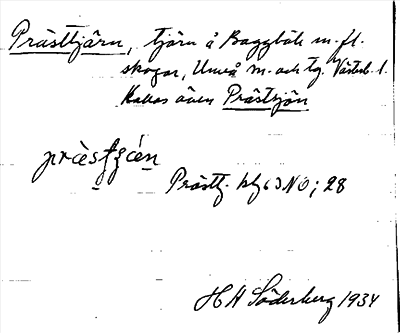 Prästtjärn, tjärn å Baggböle m. fl.
skogar, Umeå m. och tg. Västerb. l.
Kallas även Prästsjön
Prästtj. blg 63 NO; 28
H H Söderberg 1934